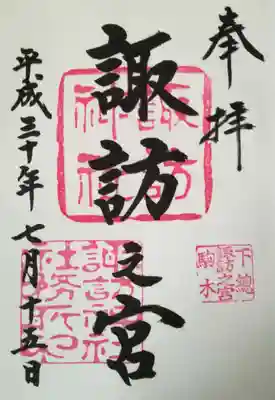 奉拝
諏訪之宮
平成三十年七月十五日
諏訪神社
下總
諏訪之宮
駒木
諏訪神社